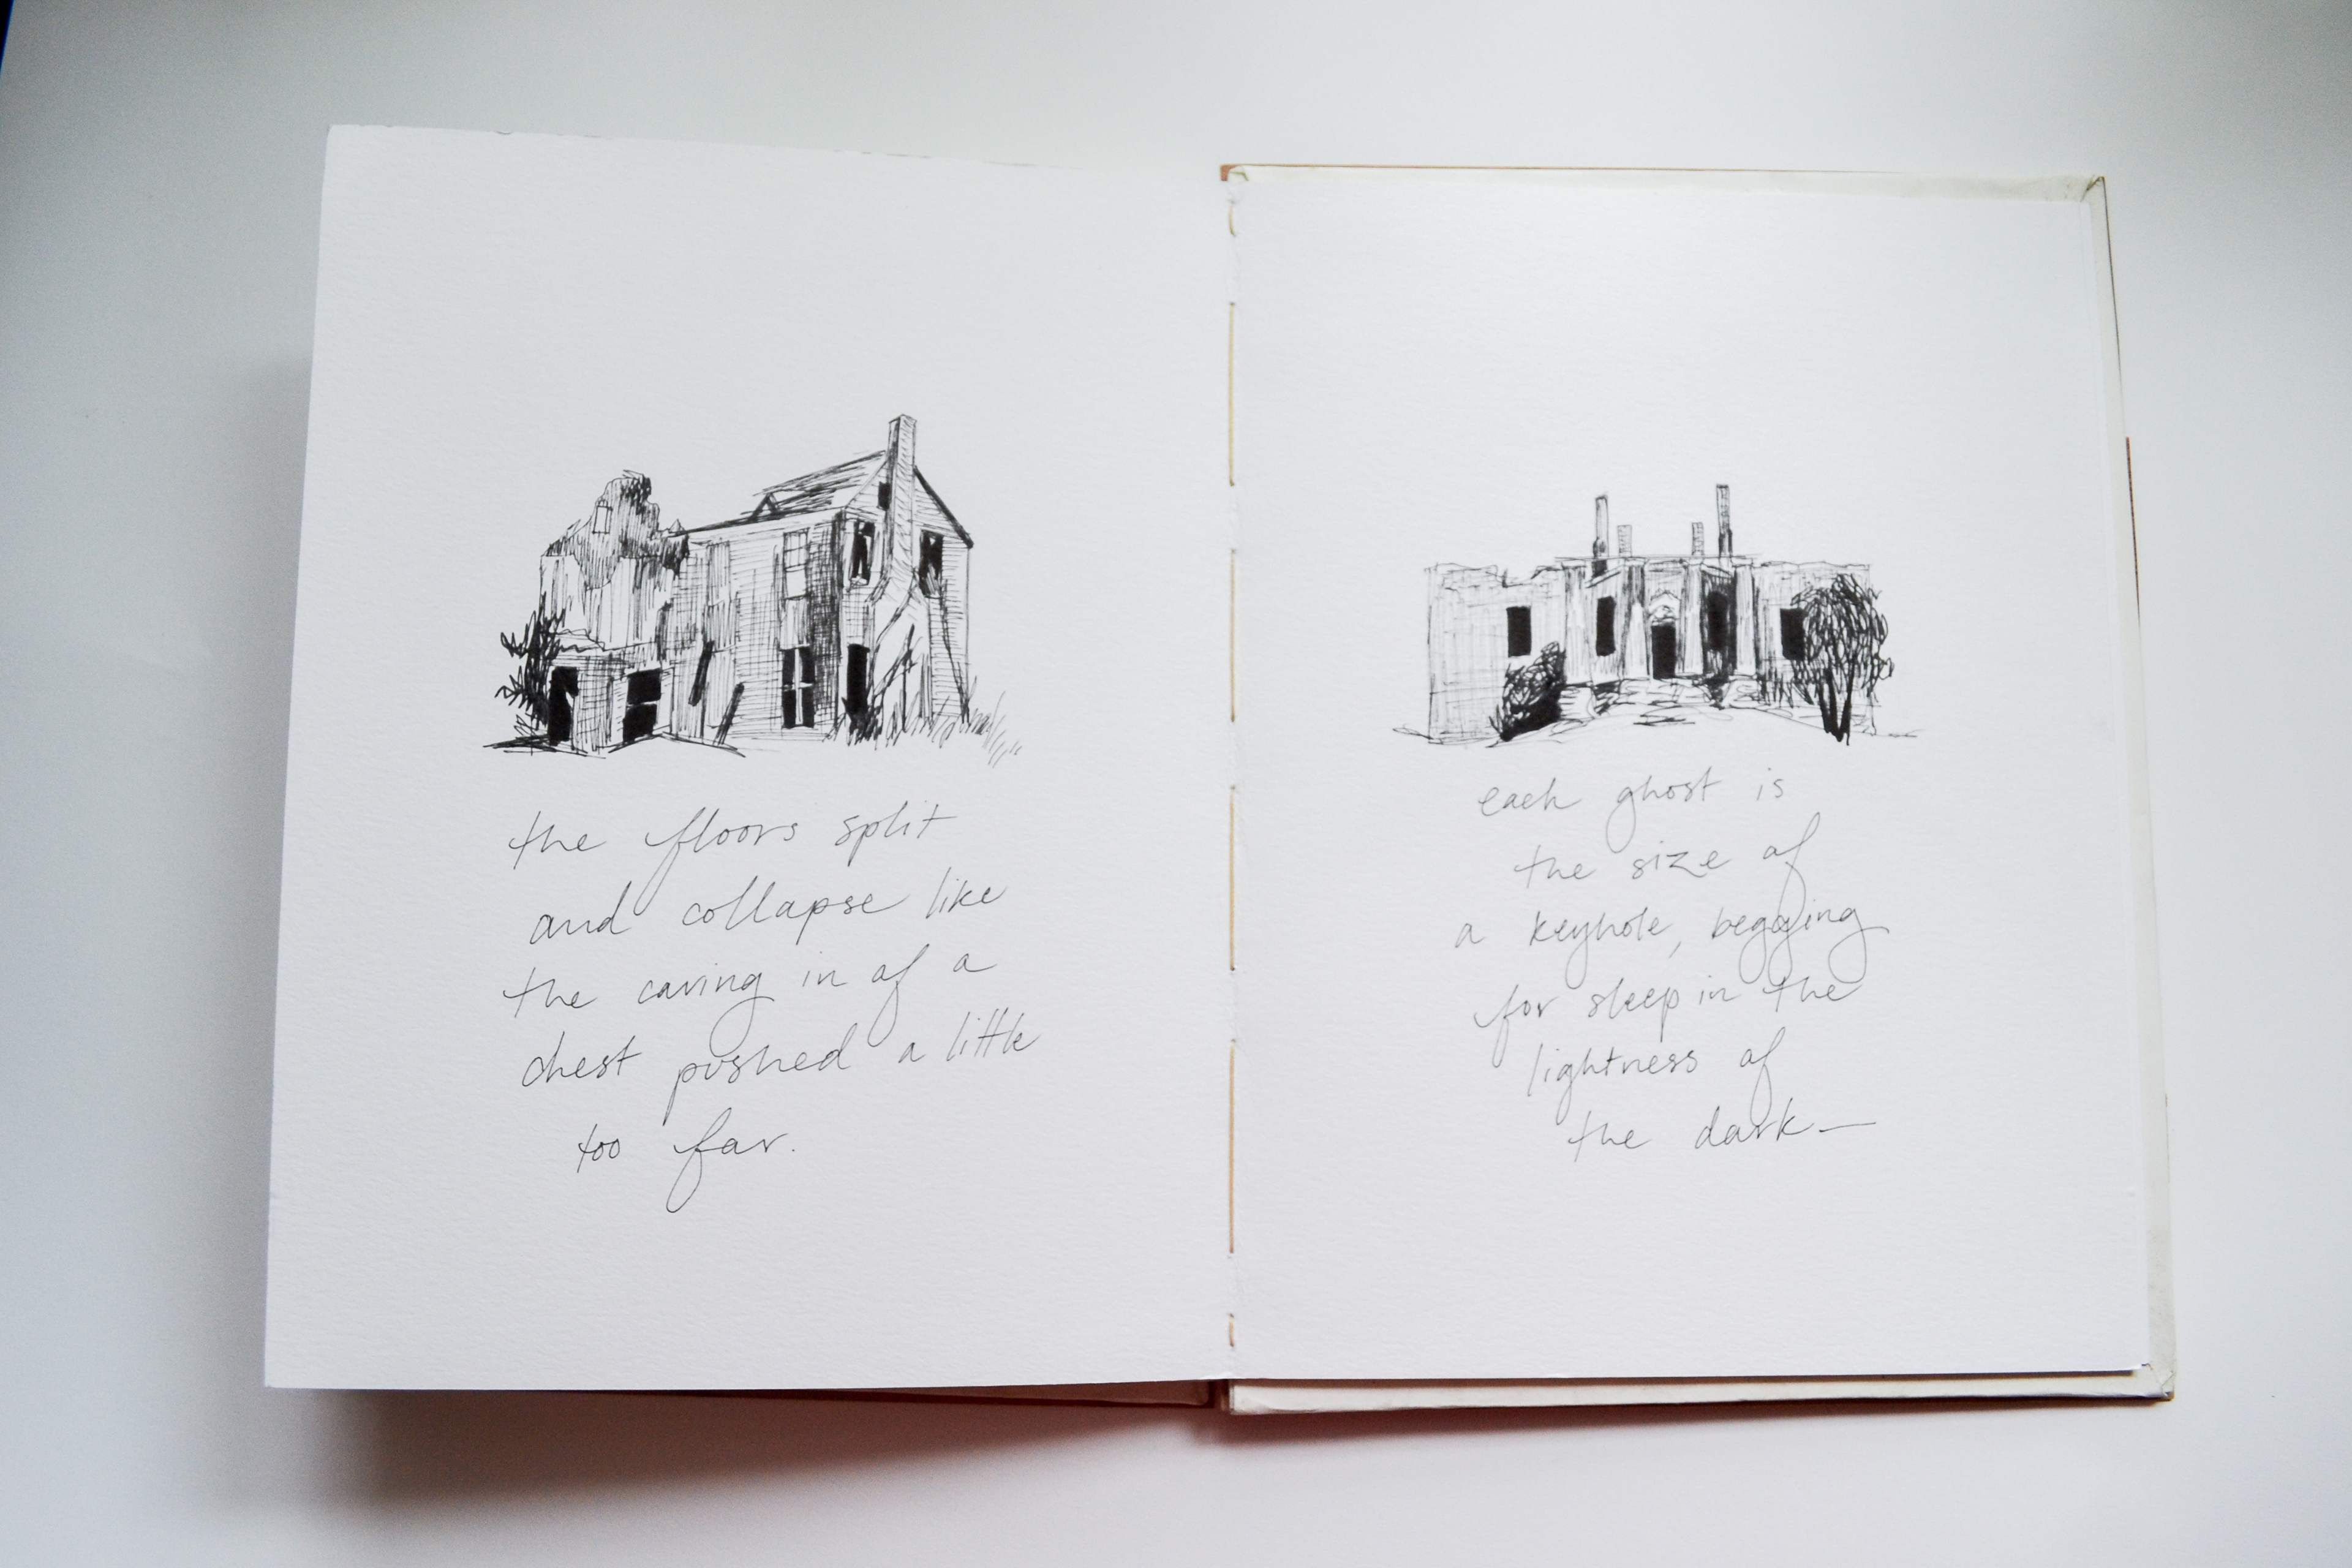 the floors split
and collapse like
the caving in of a
chest pushed a little
too far.
each ghost is
the size of
a keyhole, begging
for sleep in the
lightness of
the dark—